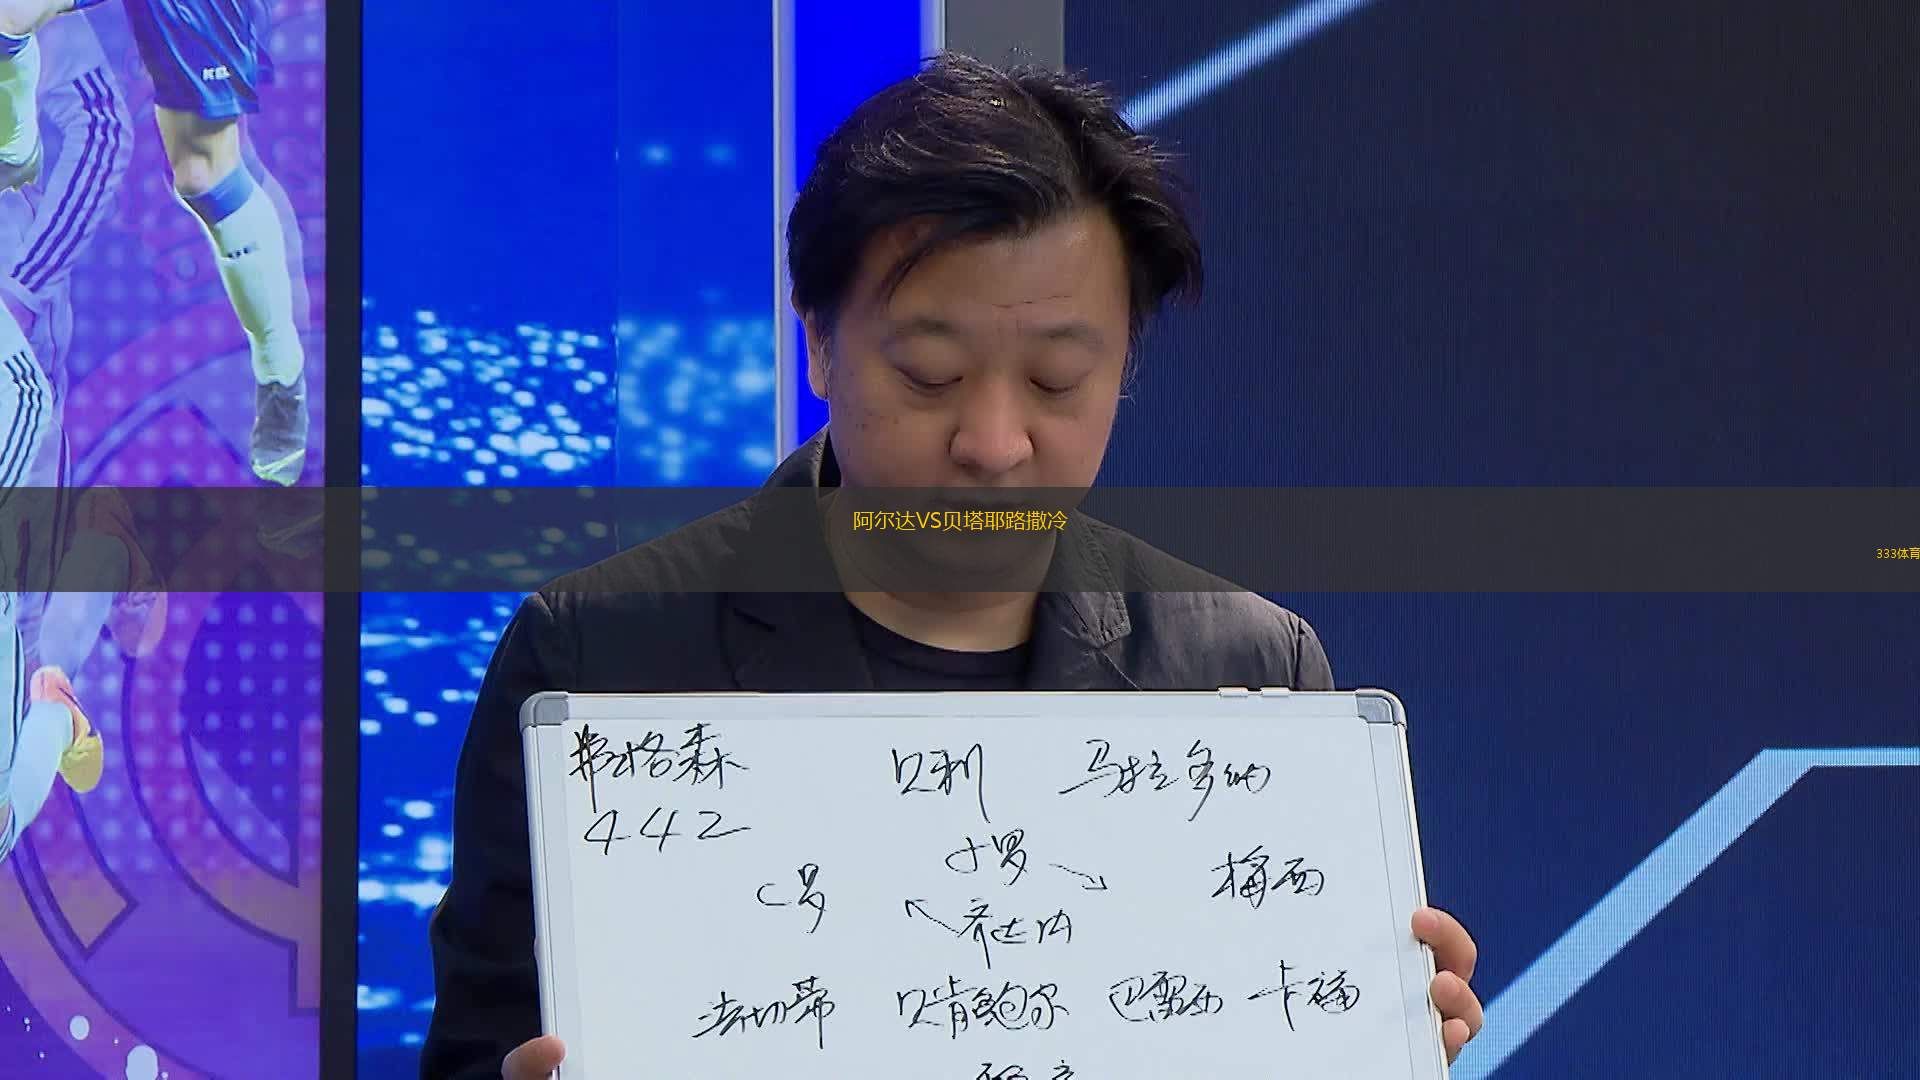 阿尔达VS贝塔耶路撒冷
333体育
弗格森 贝利 马拉多纳
442
小罗
C罗 梅西
齐达内
法切蒂 贝肯鲍尔 巴雷西 卡福